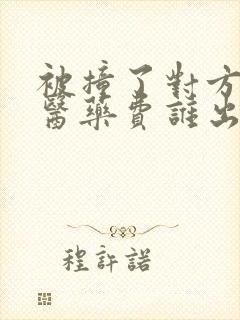 被撞了對方
醫藥費誰出
程許諾